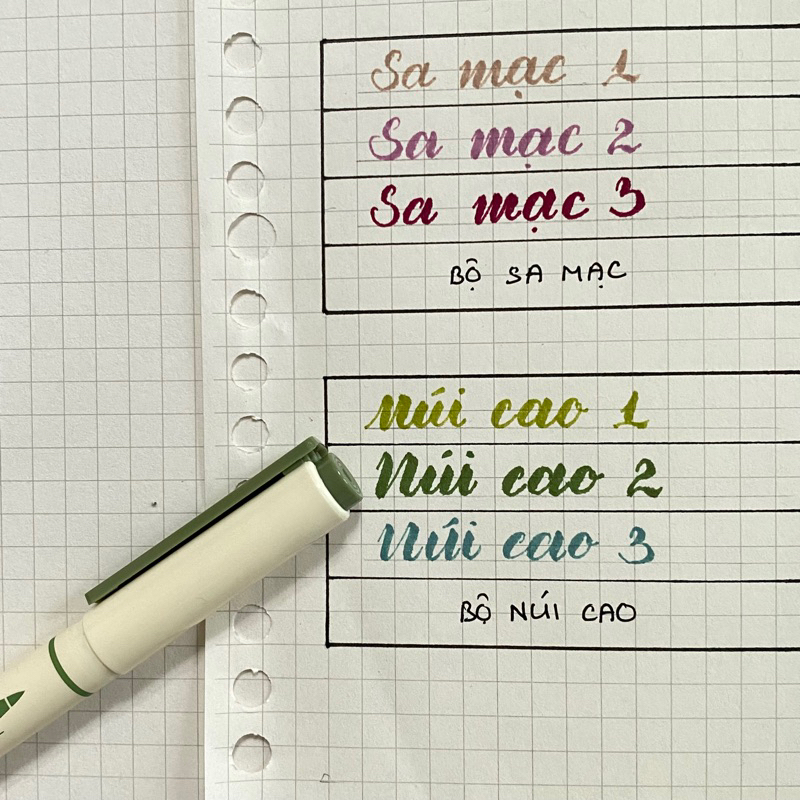 Sa mạc 1
Sa mạc 2
Sa mạc 3
BỘ SA MẠC
Núi cao 1
Núi cao 2
Núi cao 3
BỘ NÚI CAO